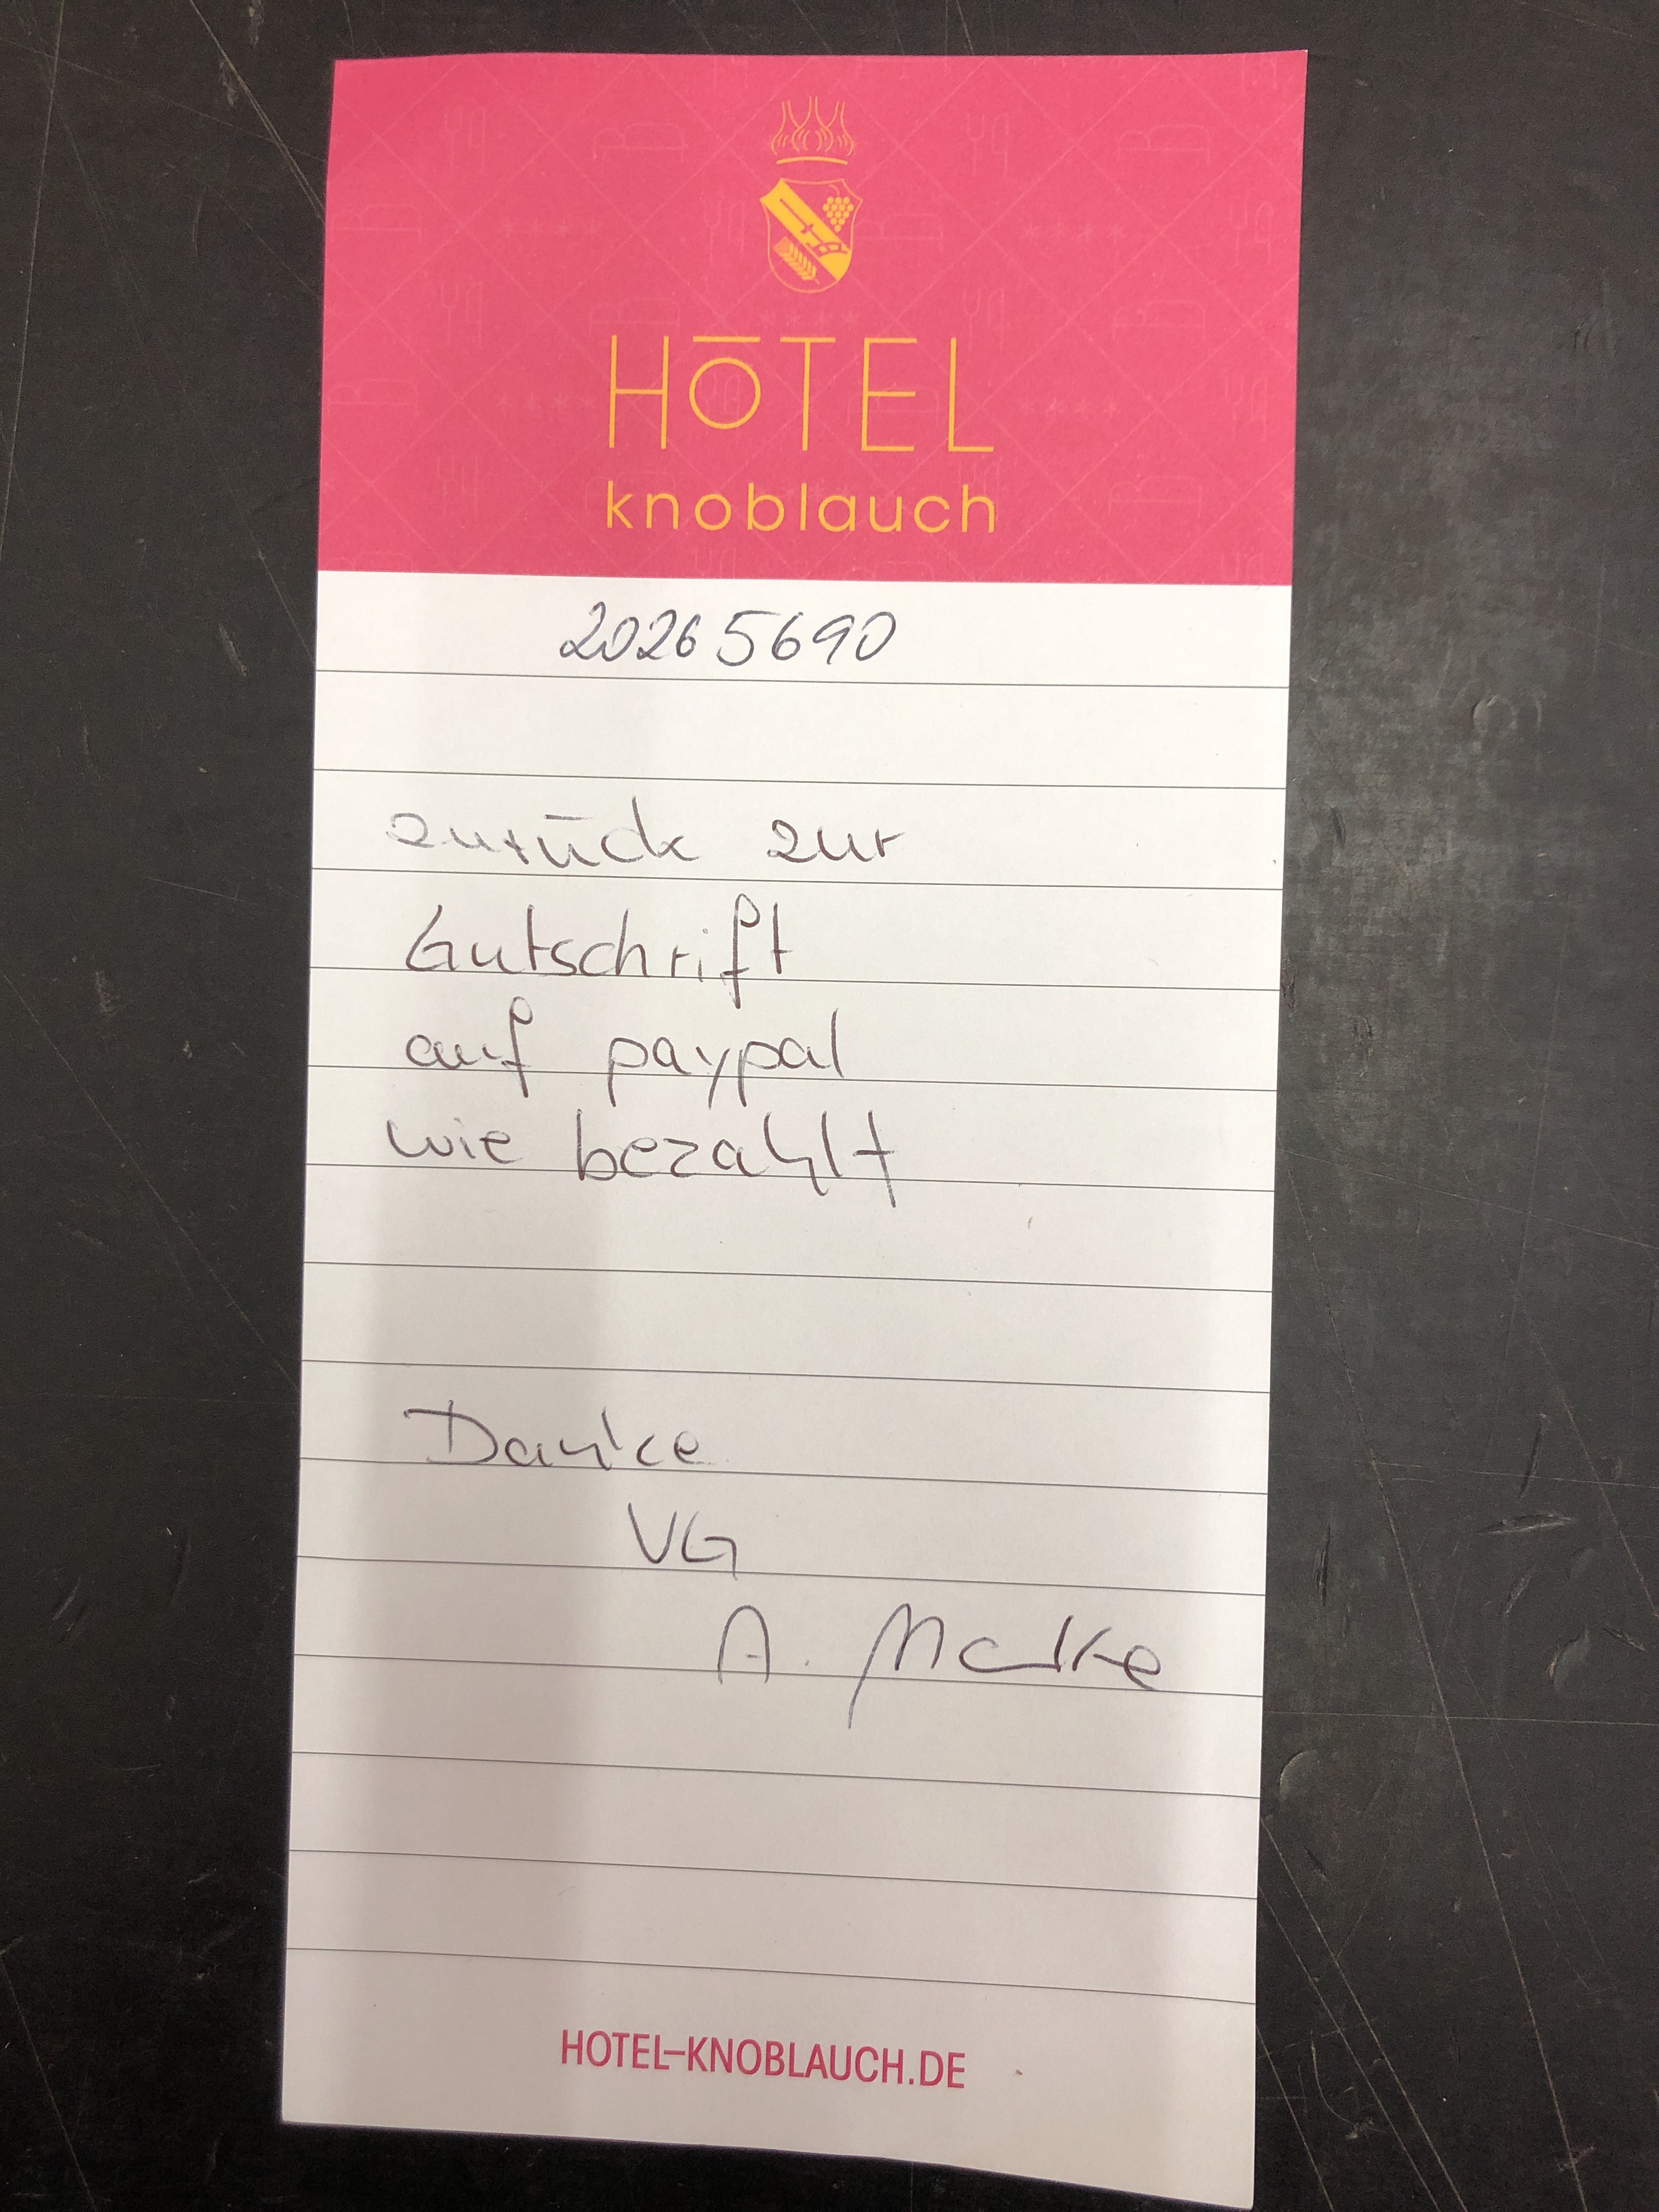 HōTEL
knoblauch
20265690
zurück zur
Gutschrift
auf paypal
wie bezahlt
Danke
VG
A.
HOTEL-KNOBLAUCH.DE